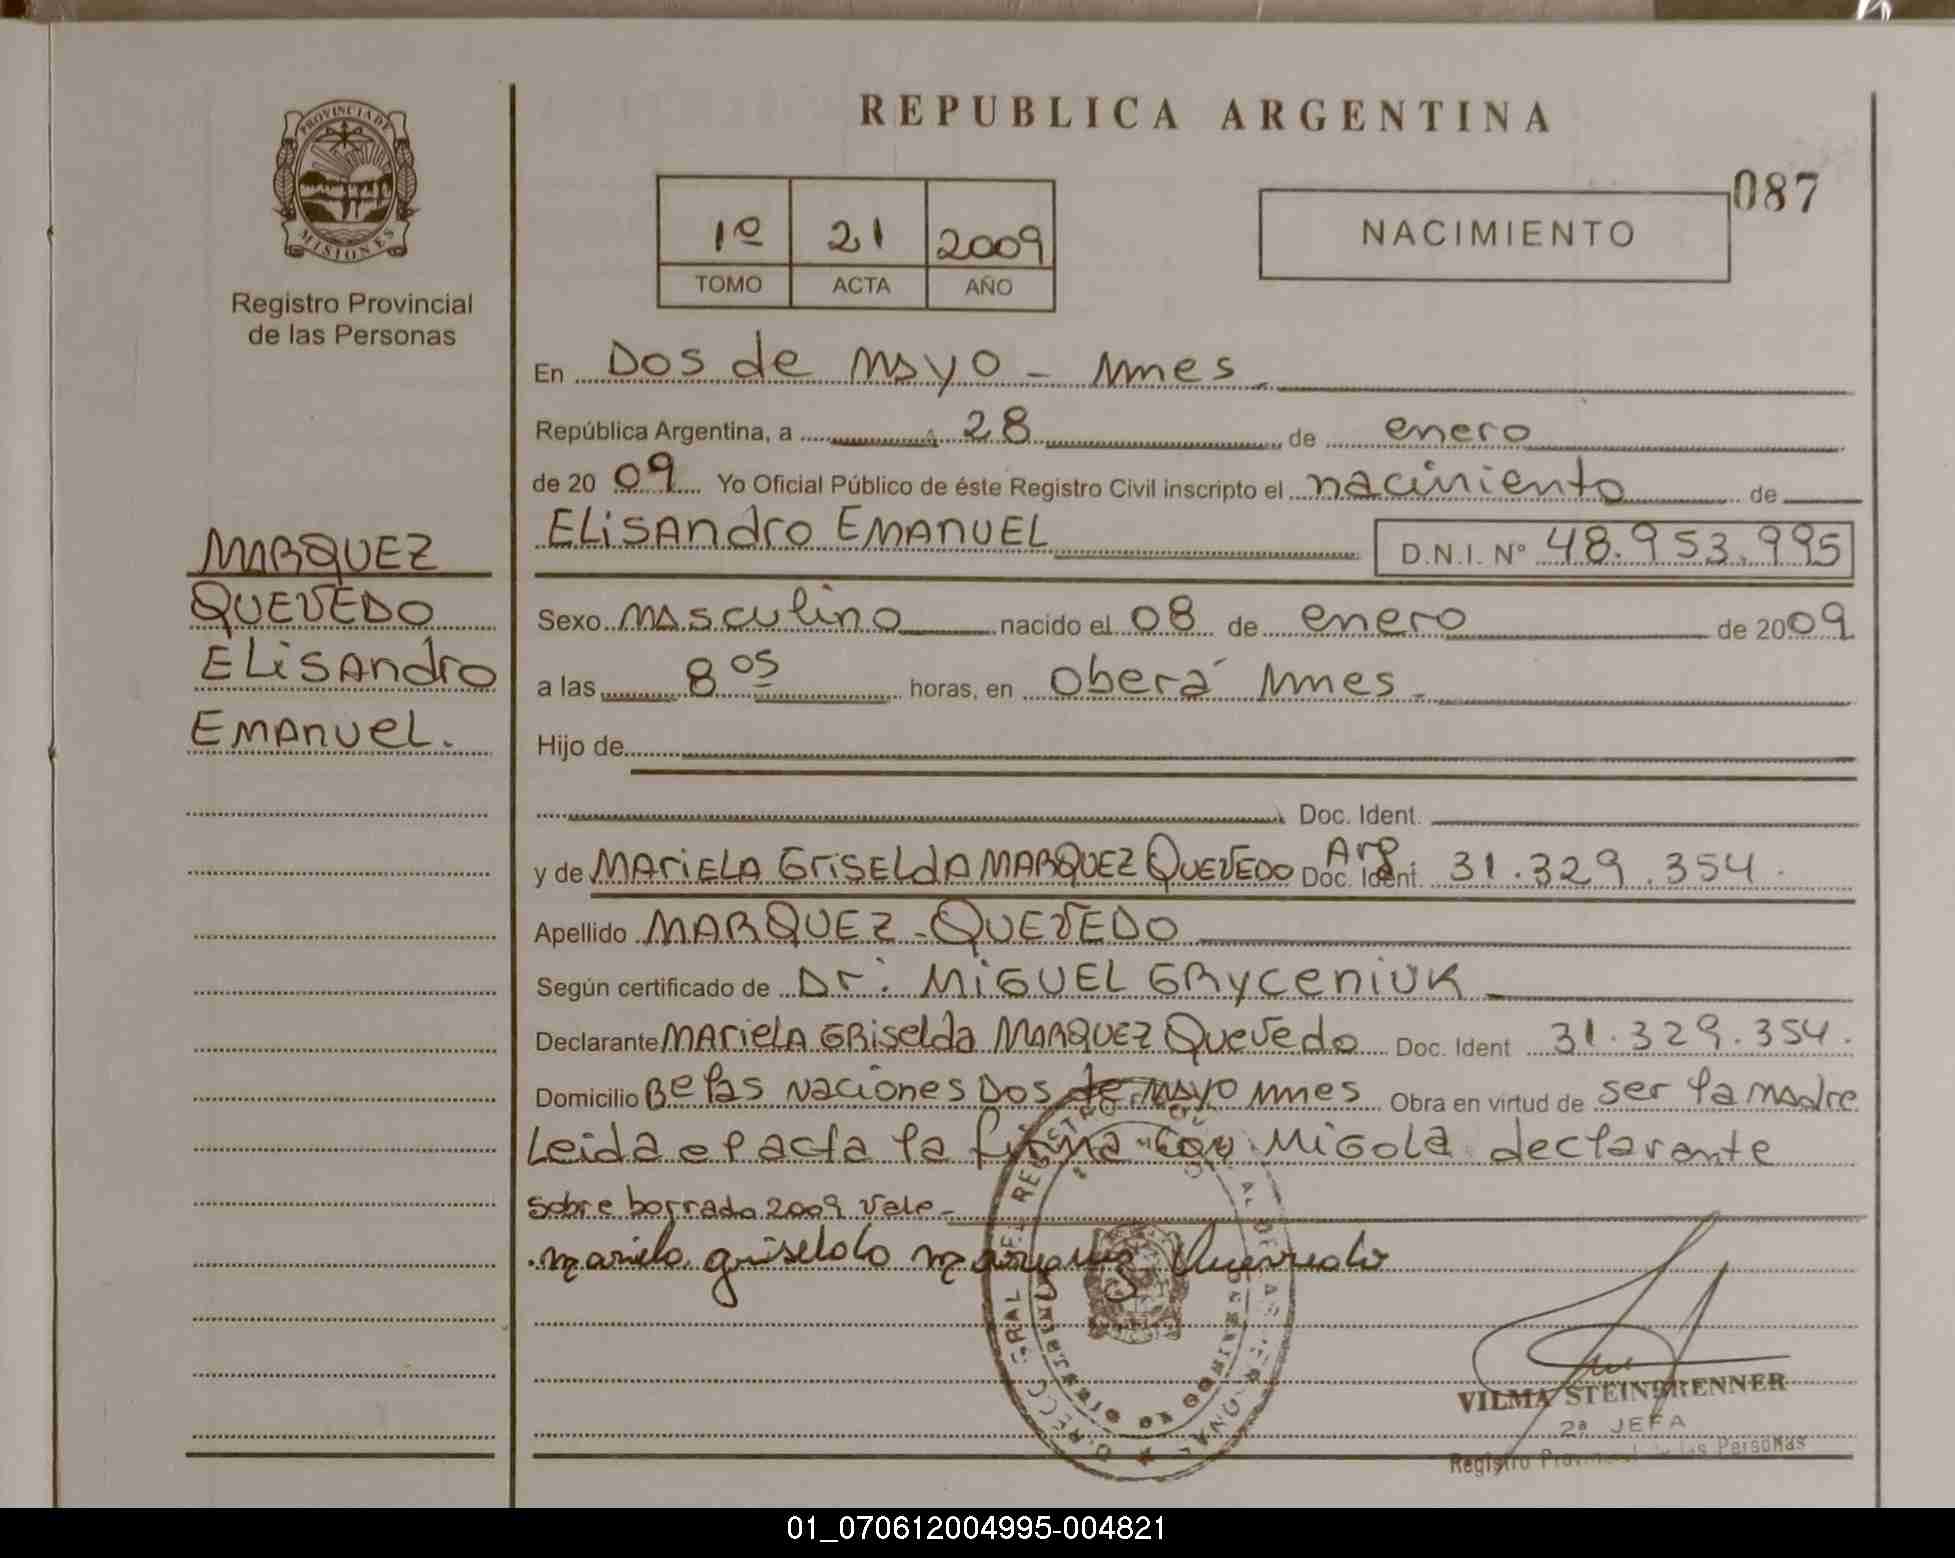 REPUBLICA ARGENTINA
087
PROVINCIA DE
MISIONES
Registro Provincial
de las Personas
1º 21 2009
TOMO ACTA AÑO
NACIMIENTO
En Dos de Mayo - Mnes.
República Argentina, a 28 de enero
de 20 09 Yo Oficial Público de éste Registro Civil inscripto el nacimiento de
ELISANDRO EMANUEL D.N.I. Nº 48.953.995
MARQUEZ
QUEVEDO
ELISANDRO
EMANUEL.
Sexo masculino nacido el 08 de enero de 2009
a las 8 05 horas, en Oberá Mnes.
Hijo de
Doc. Ident.
y de MARIELA GRISELDA MARQUEZ QUEVEDO Arg Doc. Ident. 31.329.354.
Apellido MARQUEZ - QUEVEDO
Según certificado de Dr. MIGUEL GRYCENIUK
Declarante MARIELA GRISELDA MARQUEZ QUEVEDO Doc. Ident 31.329.354.
Domicilio Bº las Naciones Dos de Mayo Mnes Obra en virtud de ser la madre
Leida el acta la firma con Migo la declarante
sobre borrado 2009 vale -
mariela griselda marquez Quevedo
VILMA STEINBRENNER
2ª JEFA
Registro Provincial de las Personas
01_070612004995-004821